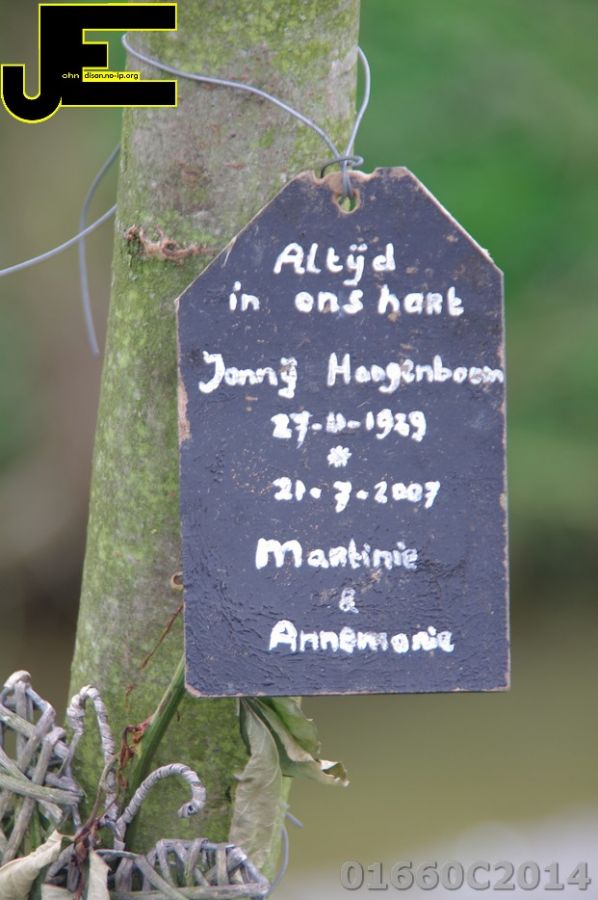 JE
ohn dison.no-ip.org
Altijd
in ons hart
Jonny Hoogenboom
27-11-1929
*
21-7-2007
Martinie
&
Annemarie
01660C2014